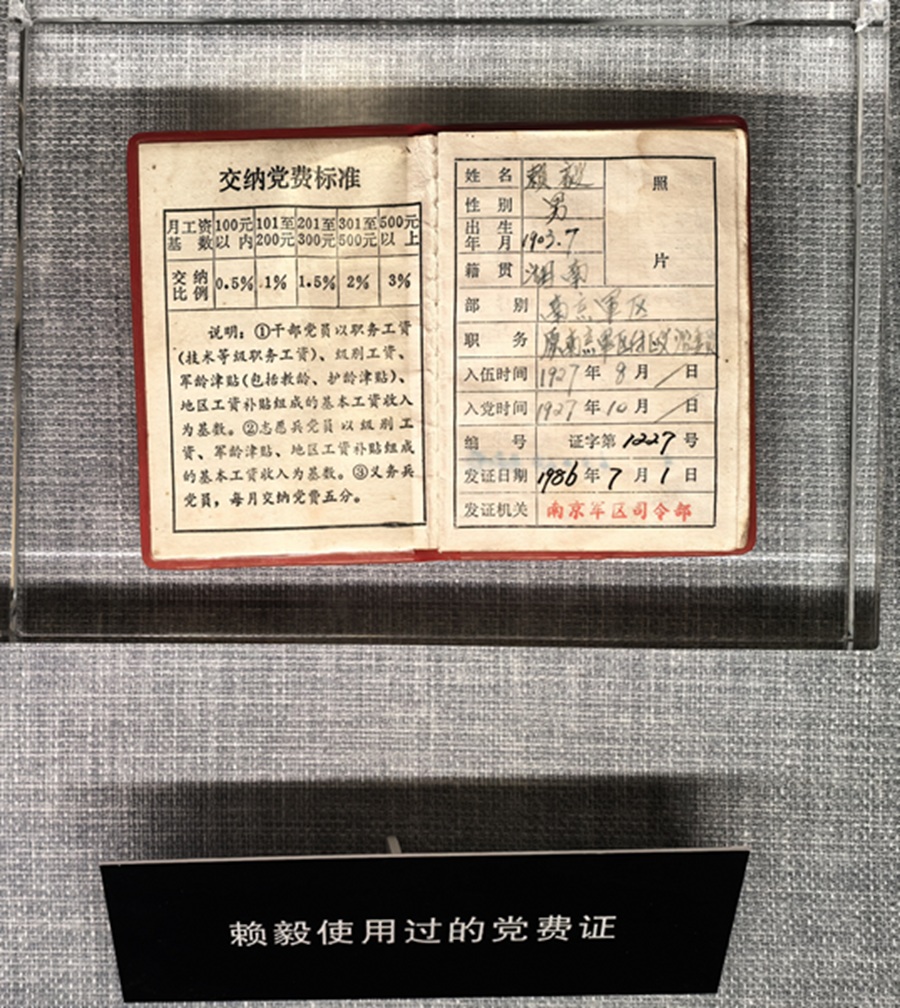 交纳党费标准
月工资基数 100元以内 101至200元 201至300元 301至500元 500元以上
交纳比例 0.5% 1% 1.5% 2% 3%
说明：①干部党员以职务工资
(技术等级职务工资)、级别工资、
军龄津贴(包括教龄、护龄津贴)、
地区工资补贴组成的基本工资收入
为基数。②志愿兵党员以级别工
资、军龄津贴、地区工资补贴组成
的基本工资收入为基数。③义务兵
党员，每月交纳党费五分。
姓名 赖毅
照片
性别 男
出生年月 1903.7
籍贯 湖南
部别 南京军区
职务 原南京军区付政治委员
入伍时间 1927年8月 日
入党时间 1927年10月 日
编号 证字第1227号
发证日期 1986年7月1日
发证机关 南京军区司令部
赖毅使用过的党费证